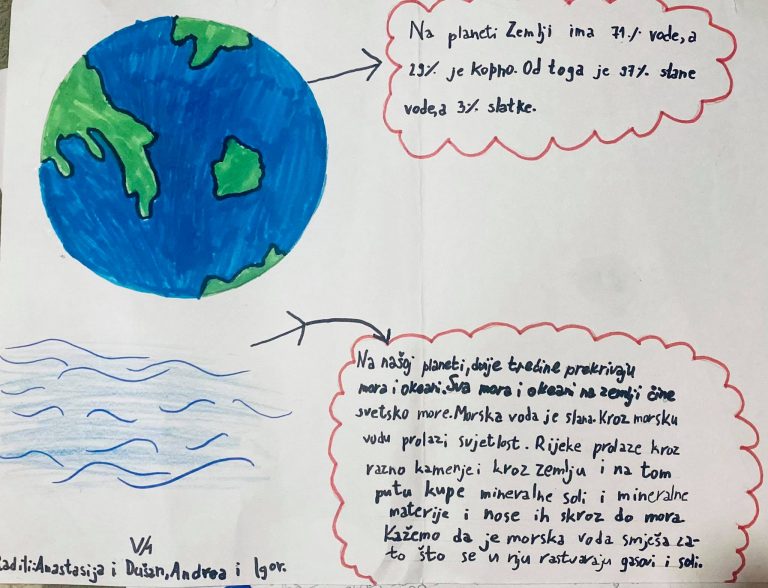 Na planeti Zemlji ima 71% vode, a
29% je kopno. Od toga je 97% slane
vode, a 3% slatke.
Na našoj planeti, dvije trećine prekrivaju
mora i okeani. Sva mora i okeani na zemlji čine
svetsko more. Morska voda je slana. Kroz morsku
vodu prolazi svjetlost. Rijeke prolaze kroz
razno kamenje i kroz zemlju i na tom
putu kupe mineralne soli i mineralne
materije i nose ih skroz do mora
Kažemo da je morska voda smješa za-
to što se u nju rastvaraju gasovi i soli.
V/1
Radili: Anastasija i Dušan, Andrea i Igor.